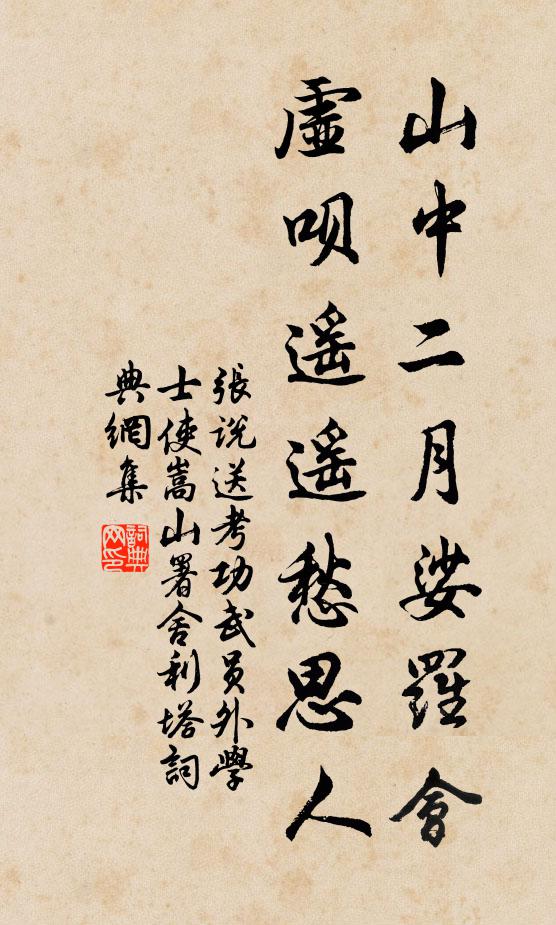 山中二月娑羅會
虛唄遥遥愁思人
張说送考功武员外學
士使嵩山署舍利塔詞
典網集
詞典网印